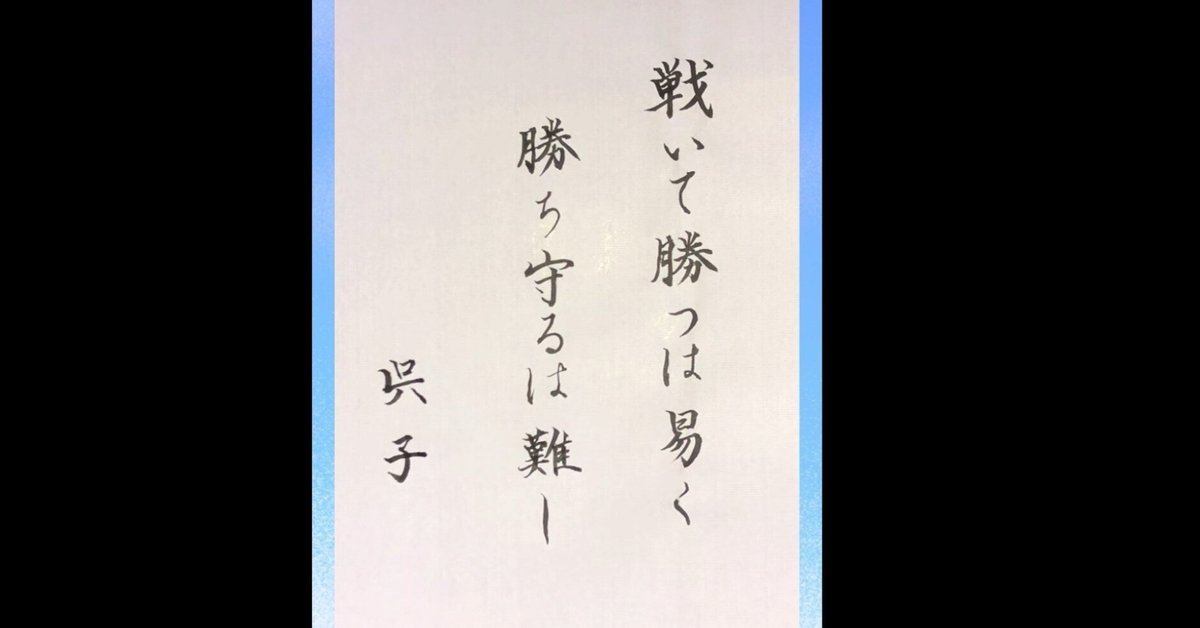 戦いて勝つは易く
勝ち守るは難し
呉子